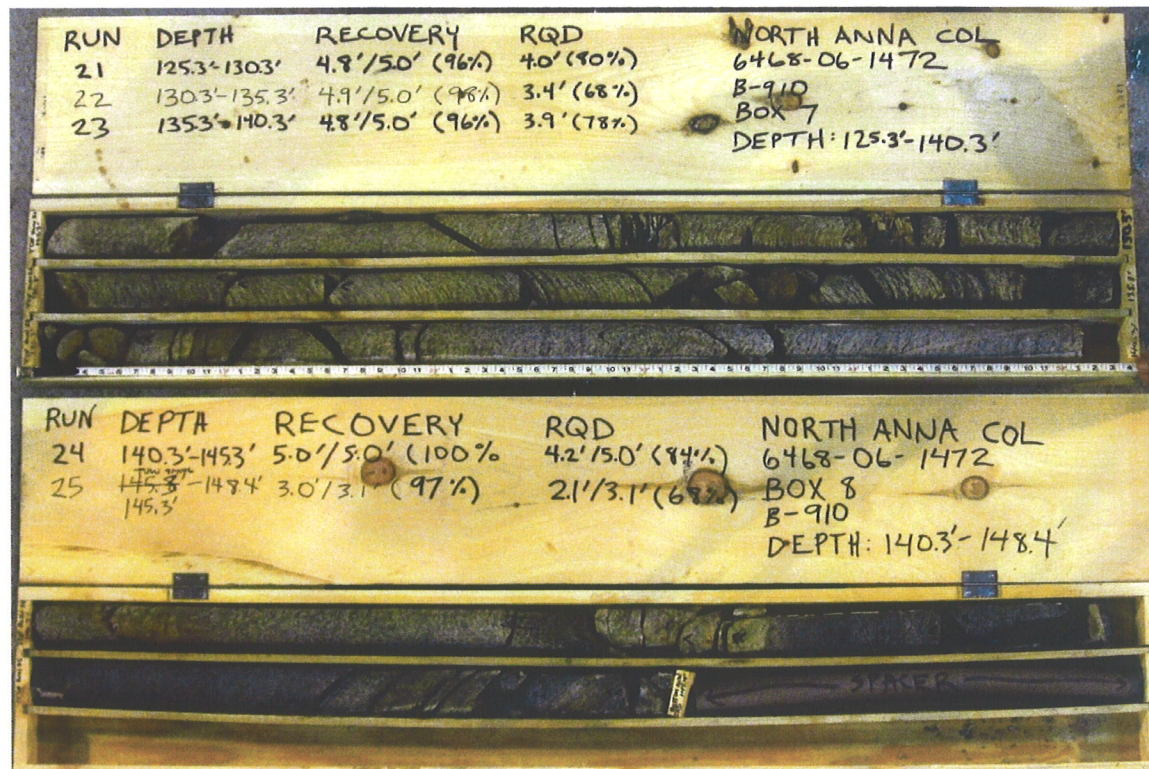 RUN DEPTH RECOVERY RQD
21 125.3'-130.3' 4.8'/5.0' (96%) 4.0' (80%)
22 130.3'-135.3' 4.9'/5.0' (98%) 3.4' (68%)
23 135.3'-140.3' 4.8'/5.0' (96%) 3.9' (78%)
NORTH ANNA COL
6468-06-1472
B-910
BOX 7
DEPTH: 125.3'-140.3'
RUN DEPTH RECOVERY RQD
24 140.3'-145.3' 5.0'/5.0' (100% 4.2'/5.0' (84%)
25 145.8'-148.4' 3.0'/3.1' (97%) 2.1'/3.1' (68%)
145.3'
NORTH ANNA COL
6468-06-1472
BOX 8
B-910
DEPTH: 140.3'-148.4'
SPACER